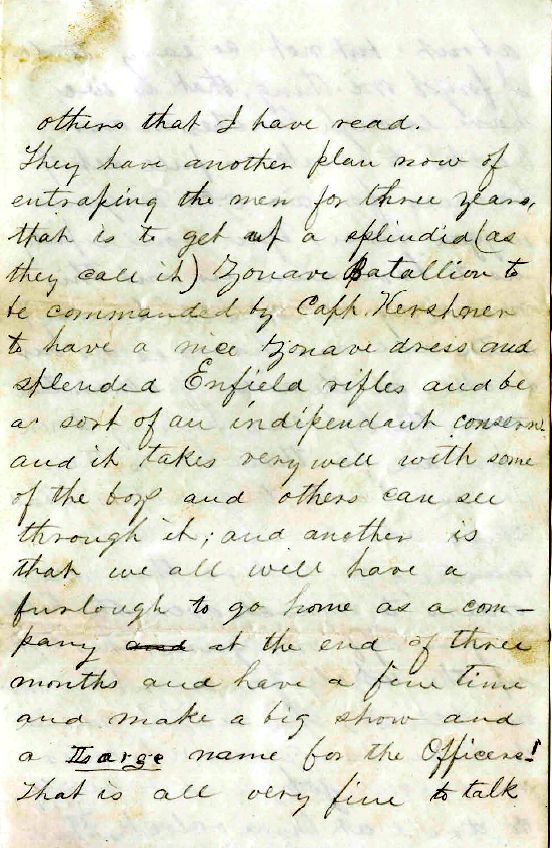 others that I have read.
They have another plan now of
entraping the men for three years,
that is to get up a splindid (as
they call it) Zouave Batallion to
be commanded by Capt. Kershner
to have a nice Zouave dress and
splended Enfield rifles and be
a sort of an indipendant consern
and it takes very well with some
of the boys and others can see
through it; and another is
that we all will have a
furlough to go home as a com-
pany and at the end of three
months and have a fine time
and make a big show and
a Large name for the Officers!
That is all very fine to talk